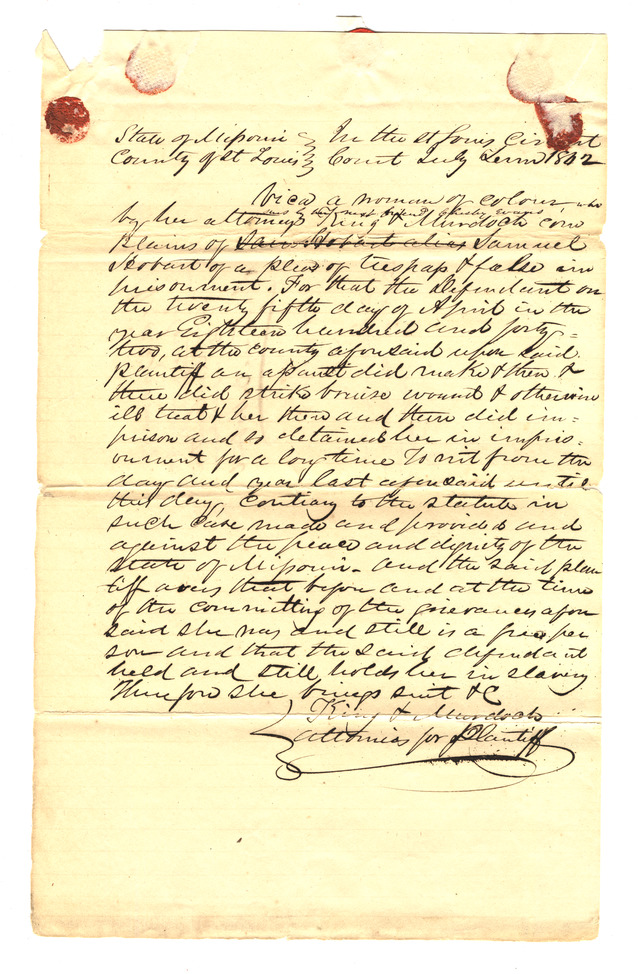 State of Missouri } In the St Louis Circuit
County of St Louis } Court July Term 1842
Vica a woman of colour who
sues by her next friend
by her attorneys King & Murdoch com
plains of Sam Hobart alias Samuel
Hobart of a plea of trespass & false im
prisonment. For that the Defendant on
the twenty fifth day of April in the
year Eighteen hundred and forty-
two, at the county aforesaid upon said
plaintiff an assault did make & then &
there did strike bruise wound & otherwise
ill treat & her then and there did im-
prison and so detained her in impris-
onment for a long time To wit from the
day and year last aforesaid until
this day, Contrary to the statute in
such case made and provided and
against the peace and dignity of the
state of Missouri - and the said plain
tiff avers that before and at the time
of the committing of the grievances afore
said she was and still is a free per
son and that the said defendant
held and still holds her in slavery
Therefore she brings suit &C
King & Murdoch
attornies for Plaintiff